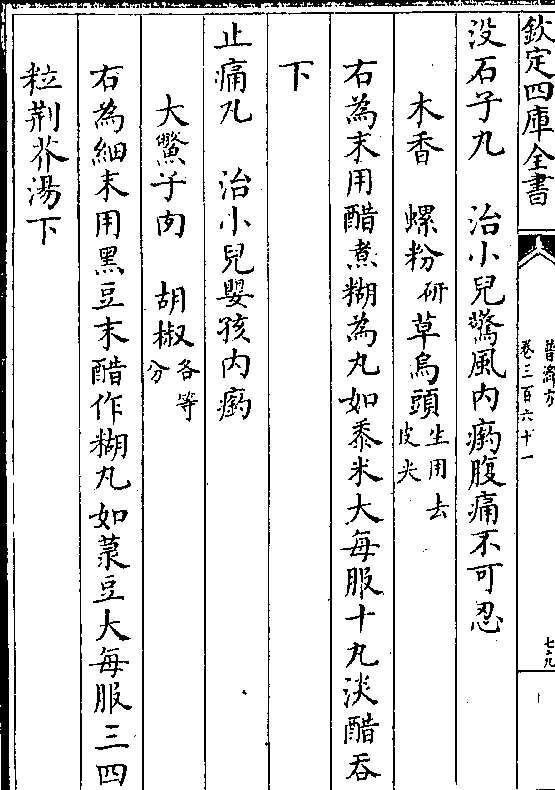 欽定四庫全書
普濟方
卷三百六十一
没石子丸　治小兒驚風内瘹腹痛不可忍
木香　螺粉研　草烏頭生用去皮尖
右為末用醋煮糊為丸如黍米大每服十丸淡醋吞
下
止痛丸　治小兒嬰孩内瘹
大鱉子肉　胡椒各等分
右為細末用黑豆末醋作糊丸如菉豆大每服三四
粒荆芥湯下